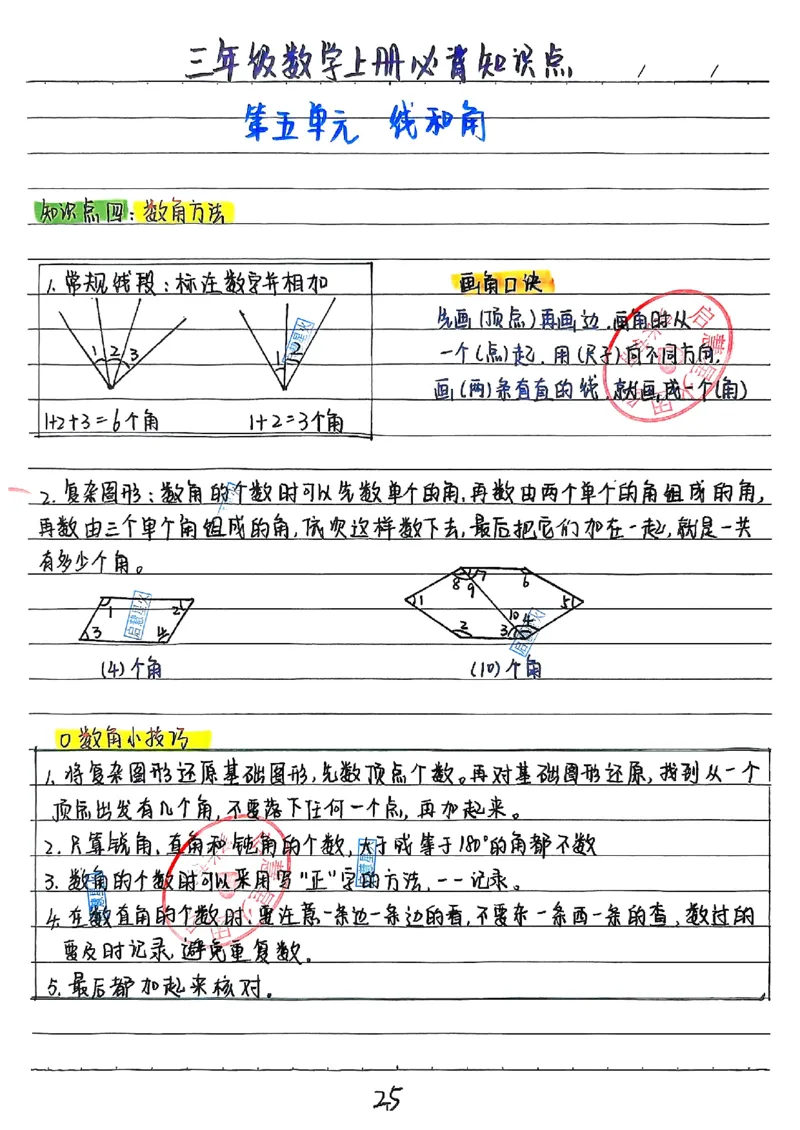 三年级数学上册必背知识点 / /
第五单元 线和角
知识点四:数角方法
1.常规线段:标注数字并相加
1 2 3
1 2
1+2+3=6个角
1+2=3个角
画角口诀
先画(顶点)再画边,画角时从
一个(点)起,用(尺子)向不同方向,
画(两)条有直的线,就画成一个(角)
2.复杂图形:数角的个数时可以先数单个的角,再数由两个单个的角组成的角,
再数由三个单个角组成的角,依次这样数下去,最后把它们加在一起,就是一共
有多少个角。
1 2
3 4
(4)个角
8 7 6
9
1 5
10 4
2 3
(10)个角
数角小技巧
1.将复杂图形还原基础图形,先数顶点个数。再对基础图形还原,找到从一个
顶点出发有几个角,不要落下任何一个点,再加起来。
2.只算锐角、直角和钝角的个数,大于或等于180°的角都不数
3.数角的个数时可以采用写"正"字的方法,一一记录。
4.在数直角的个数时,要注意一条边一条边的看,不要东一条西一条的查,数过的
要及时记录,避免重复数。
5.最后都加起来核对。
启慧星火
25